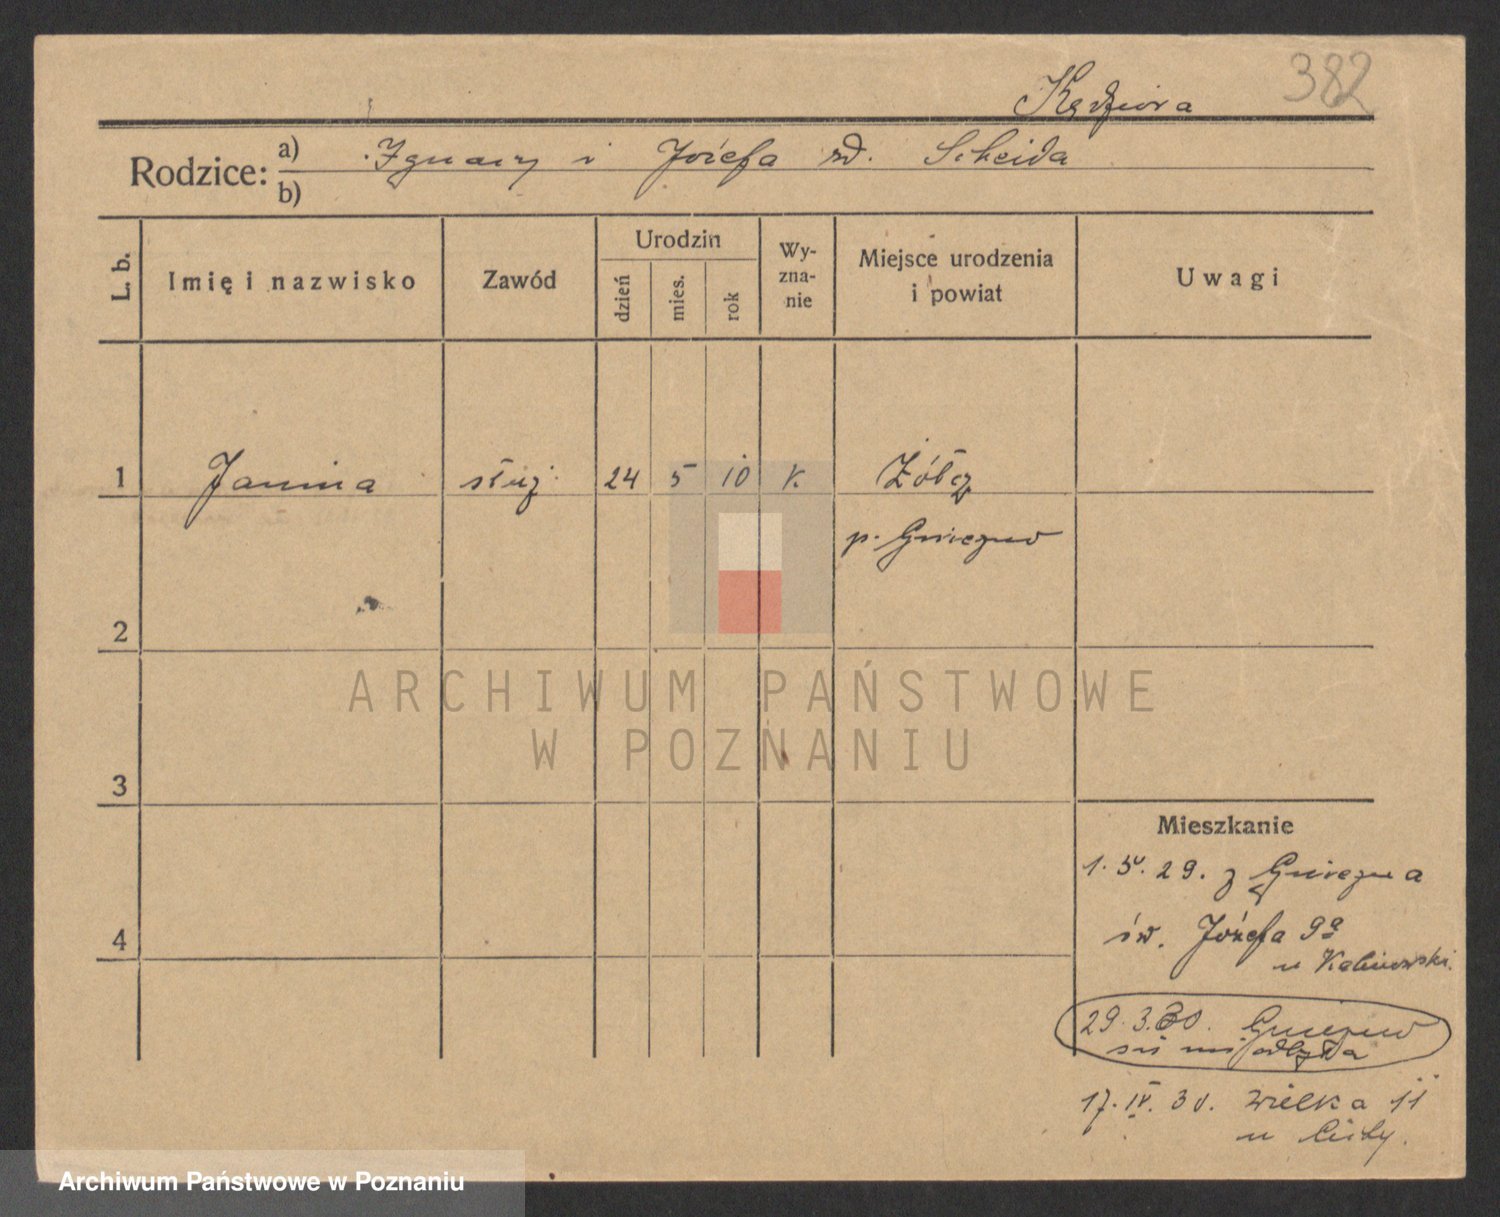 382
Kędziora
Rodzice: a) Ignacy i Józefa zd. Scheida
b)
L. b.
Imię i nazwisko
Zawód
Urodzin
dzień
mies.
rok
Wy-
zna-
nie
Miejsce urodzenia
i powiat
Uwagi
1 Janina służ. 24 5 10 k. Żółcz
p. Gniezno
2
ARCHIWUM PAŃSTWOWE
W POZNANIU
3
Mieszkanie
1. 5. 29. z Gniezna
4
św. Józefa 9a
u Kalinowski.
29. 3. 30. Gniezno
17. IV. 30. Wielka 11
u
Archiwum Państwowe w Poznaniu